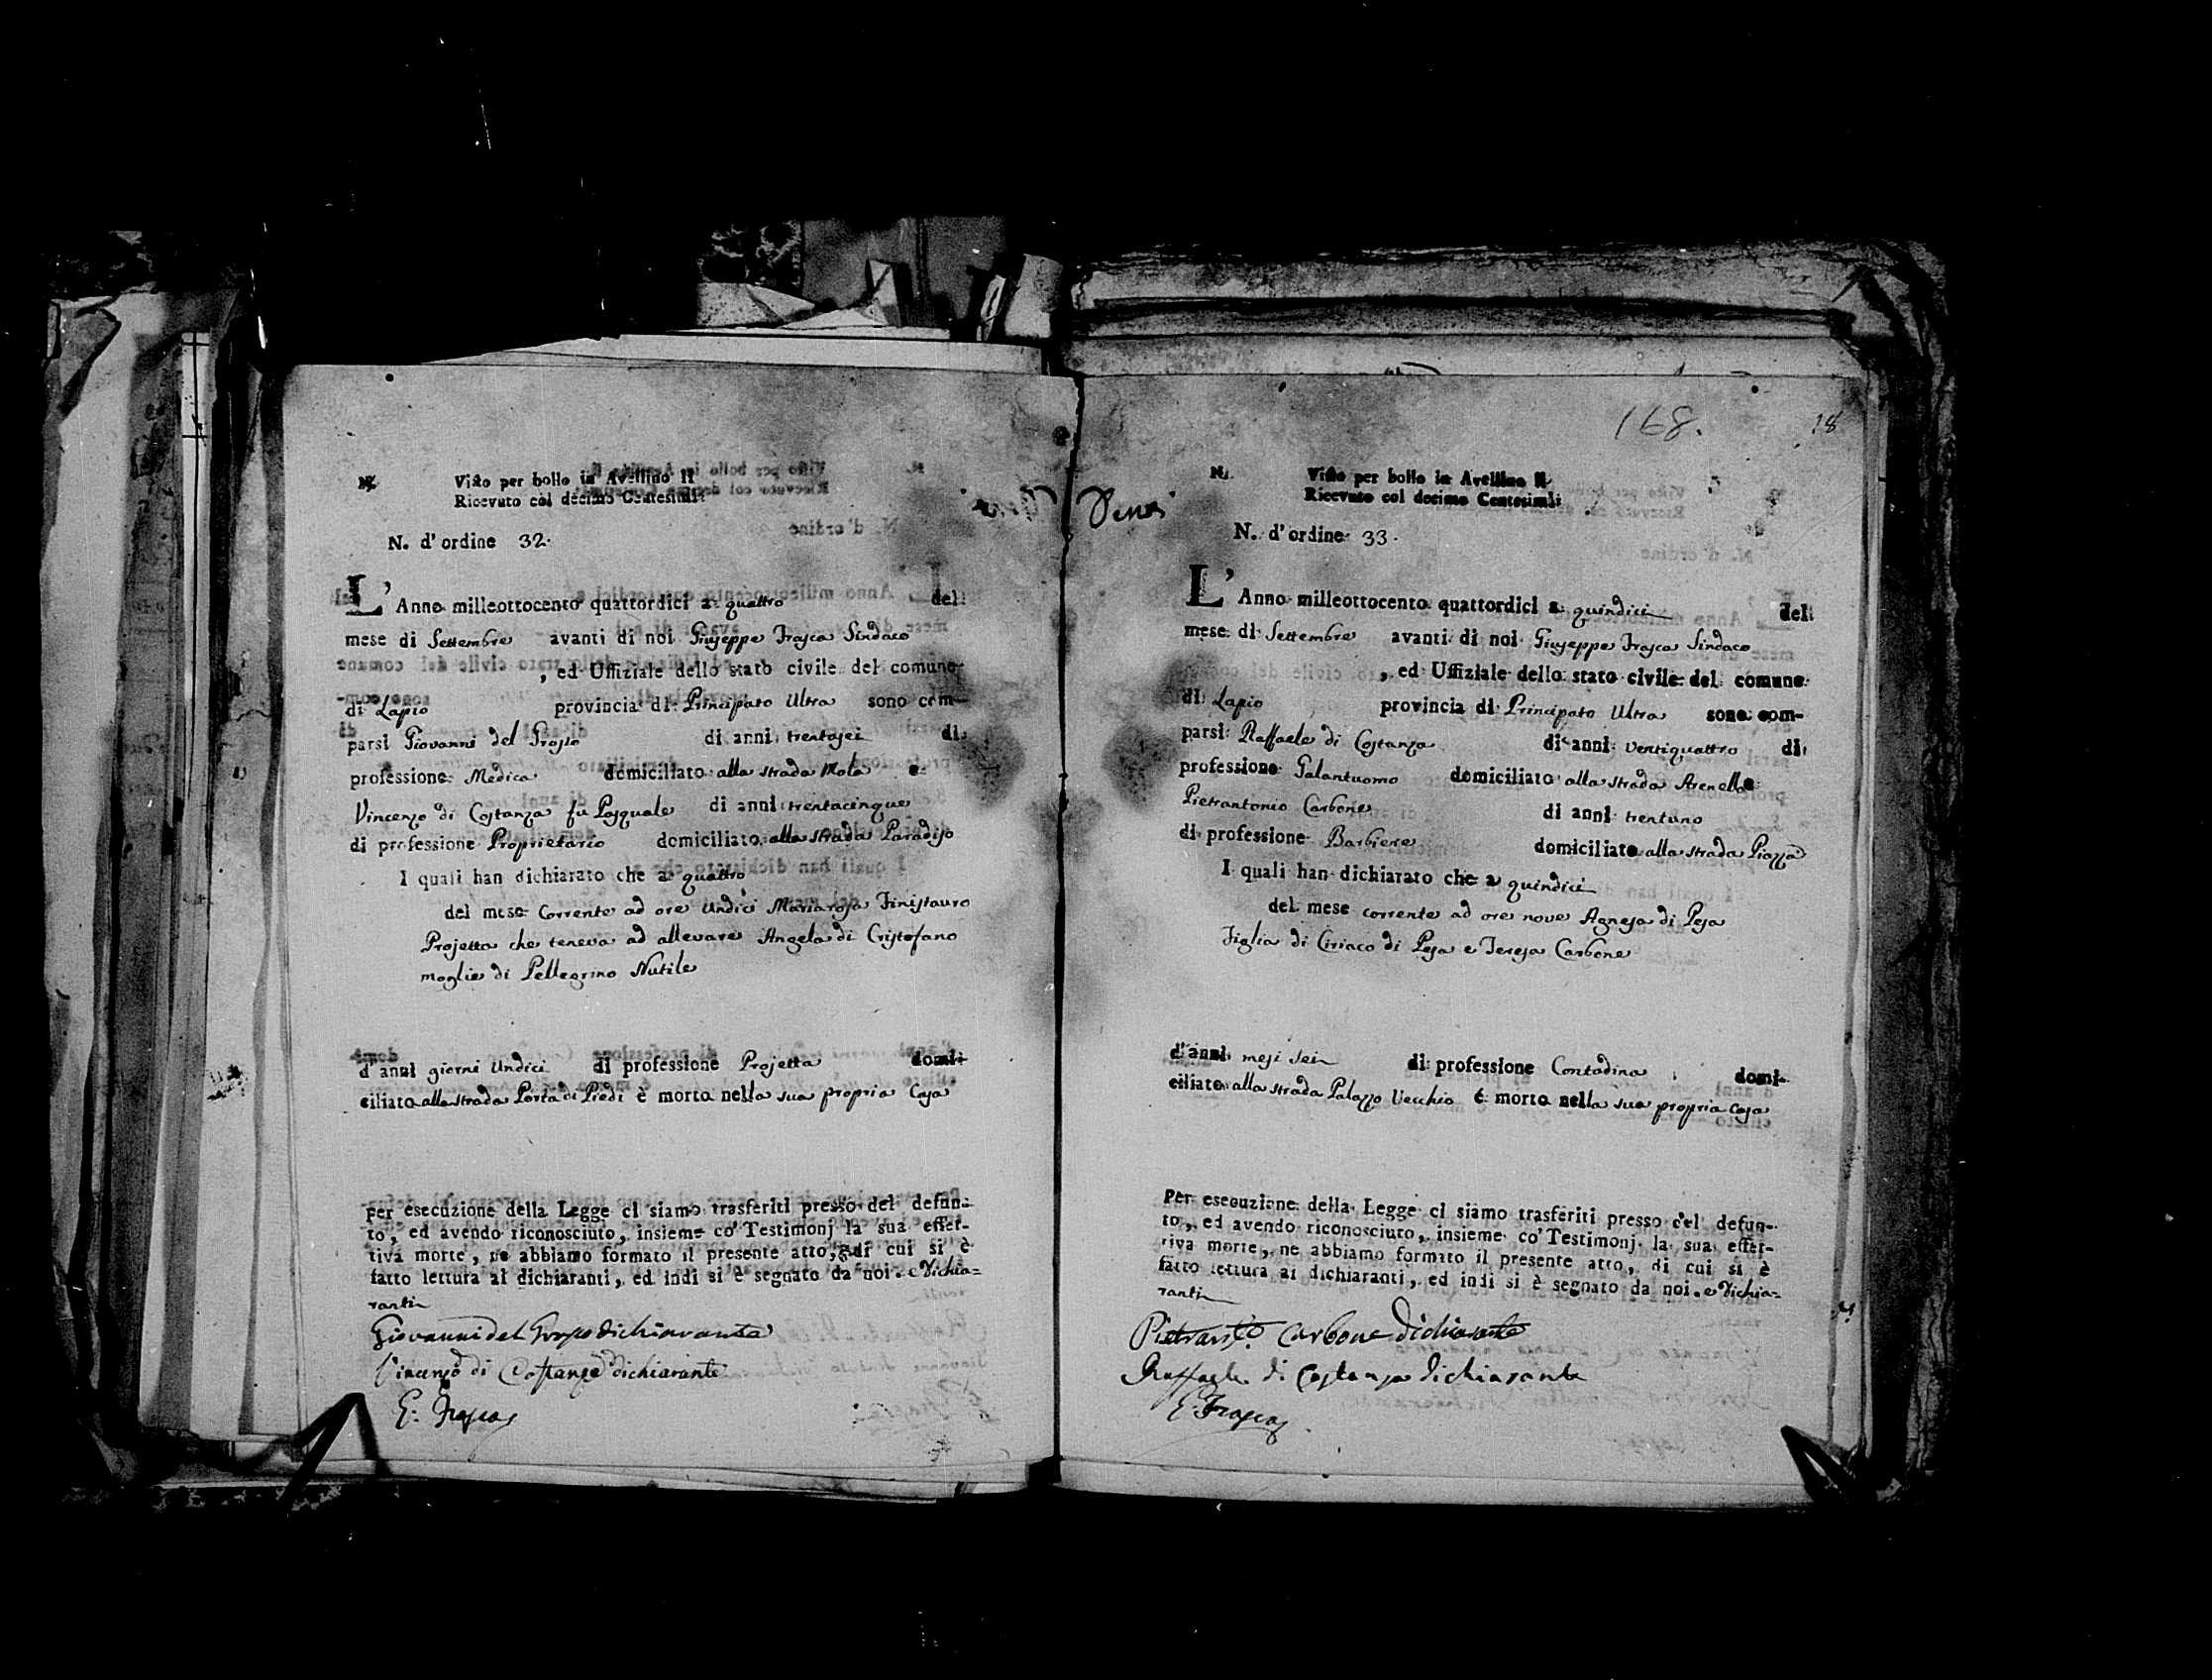 N.
Visto per bollo in Avellino li
Ricevuto col decimo Centesimi
N. d'ordine 32.
L'Anno milleottocento quattordici a quattro del
mese di Settembre avanti di noi Giuseppe Frasca Sindaco
, ed Uffiziale dello stato civile del comune
di Lapio provincia di Principato Ultra sono com-
parsi Giovanni del Grosso di anni trentasei di
professione Medico domiciliato alla strada Mola e
Vincenzo di Costanza fu Pasquale di anni trentacinque
di professione Proprietario domiciliato alla strada Paradiso
I quali han dichiarato che a quattro
del mese corrente ad ore undici Mariarosa Finistauro
Projetta che teneva ad allevare Angela di Cristofano
moglie di Pellegrino Nutile
d'anni giorni undici di professione Projetta domi-
ciliato alla strada Porta di Piedi è morto nella sua propria Casa
per esecuzione della Legge ci siamo trasferiti presso del defun-
to, ed avendo riconosciuto, insieme co' Testimonj la sua effet-
tiva morte, ne abbiamo formato il presente atto, di cui si è
fatto lettura ai dichiaranti, ed indi si è segnato da noi. e dichia=
ranti
Giovanni del Grosso dichiarante
Vincenzo di Costanza dichiarante
G. Frasca
168.
18
N.
Visto per bollo in Avellino li
Ricevuto col decimo Centesimi
N. d'ordine 33.
L'Anno milleottocento quattordici a quindici del
mese di Settembre avanti di noi Giuseppe Frasca Sindaco
, ed Uffiziale dello stato civile del comune
di Lapio provincia di Principato Ultra sono com-
parsi Raffaele di Costanza di anni ventiquattro di
professione Galantuomo domiciliato alla strada Arenella e
Pietrantonio Carbone di anni trentuno
di professione Barbiere domiciliato alla strada Piazza
I quali han dichiarato che a quindici
del mese corrente ad ore nove Agnesa di Pesa
Figlia di Ciriaco di Pesa e Teresa Carbone
d'anni mesi sei di professione Contadina domi-
ciliato alla strada Palazzo Vecchio è morto nella sua propria casa
Per esecuzione della Legge ci siamo trasferiti presso del defun-
to, ed avendo riconosciuto, insieme co' Testimonj la sua effet-
tiva morte, ne abbiamo formato il presente atto, di cui si è
fatto lettura ai dichiaranti, ed indi si è segnato da noi. e dichia=
ranti
Pietrant.o Carbone dichiarante
Raffaele di Costanza dichiarante
G. Frasca